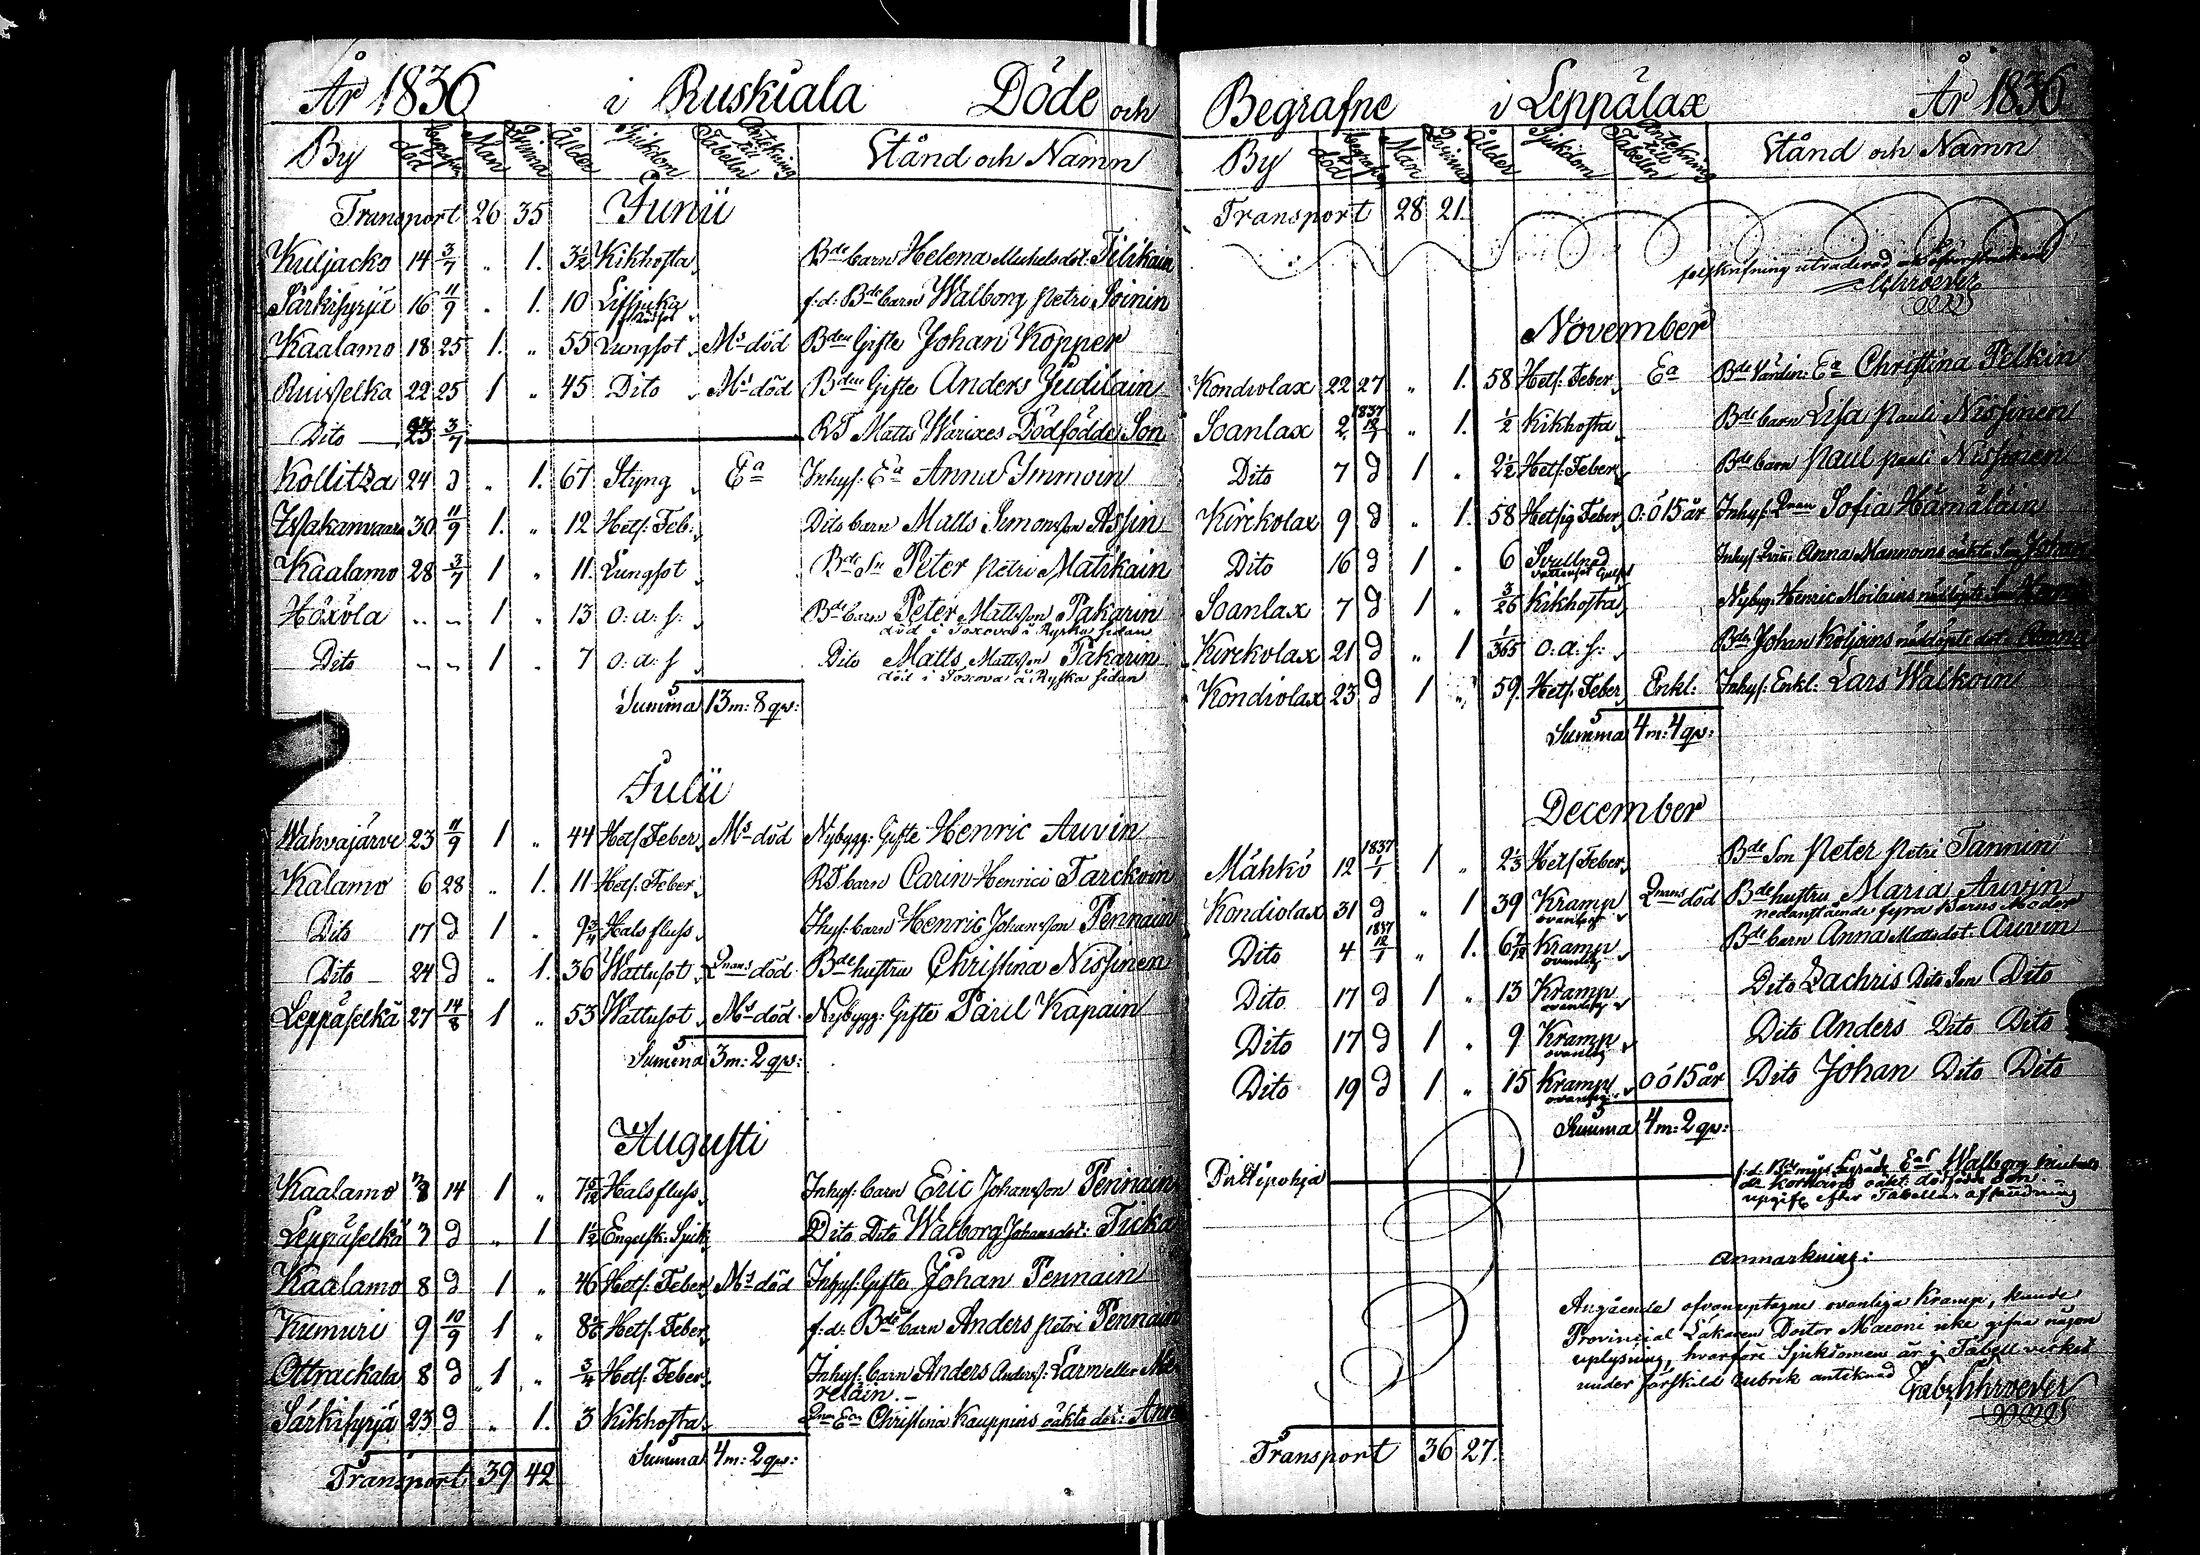 År 1836 i Ruskiala Döde och
By död begrafne Man Qvinna Ålder Sjukdom Anteckning till Tabelln Stånd och Namn
Transport 26 35 Junii
Kuljacko 14 3/7 " 1. 3½ Kikhosta Bde barn Helena Michelsdot: Tilikain
Särkisyrjä 16 11/9 " 1. 10 f:d: Bde barn Walborg Petri Soinin
Kaalamo 18 25 1. " 55 Lungsot Ms död Bden Gifte Johan Kopper
Ruisselka 22 25 1 " 45 Dito Ms död Bden Gifte Anders Juidilain
Dito 23 3/7 RT Matts Warixes Dödfödde Son
Kollitza 24 d " 1. 67 Styng Ea Inhys: Ea Anna Immoin
30 11/9 1. " 12 Hets: Feb: Dito barn Matts Simonsson Assin
Kaalamo 28 3/7 1 " 11. Lungsot Bde Sn Peter Petri Matikain
Höxola " " 1 " 13 o: a: s: Bde barn Peter Mattsson Pakarin
död i Ryska sidan
Dito " " 1 " 7 o: a: s Dito Matts Mattsson Pakarin
död i Ryska sidan
Summa 13 m: 8 qv:
Julii
Wahvajärve 23 11/9 1 " 44 Hets Feber Ms död Nybygg: Gifte Henric Auvin
Kalamo 6 28 " 1. 11 Hets: Feber RT barn Carin Henrici Tarckoin
Dito 17 d 1 " 9¾ Halsfluss Inhys: barn Henric Johansson Pennain
Dito 24 d " 1. 36 Wattusot Qnans död Bde hustru Christina Nissinen
Leppäselkä 27 14/8 1 " 53 Wattusot Ms död Nybygg: Gifte Paul Kapain
Summa 3 m: 2 qv:
Augusti
Kaalamo 14 1 " Halsfluss Inhys: barn Eric Johansson Pennain
Leppäselkä 3 d " 1. 1½ Engelsk: Sjuk: Dito Dito Walborg Johansdot: Ticka
Kaalamo 8 d 1 " 46 Hets: Feber Ms död Inhys: Gifte Johan Pennain
Kumuri 9 10/9 1 " Hets: Feber f:d: Bde barn Anders Petri Pennain
Ottrackala 8 d 1 " ¾ Hets: Feber Inhys: barn Anders Anderss: Larm eller
Särkisyrjä 23 d " 1. 3 Kikhosta Qnan Ea Christina Kauppins oäkta dot: Anna
Summa 4 m: 2 qv:
Transport 39 42
Begrafne i Leppälax År 1836
By död begrafne Man Qvinna Ålder Sjukdom Anteckning till Tabelln Stånd och Namn
Transport 28 21.
Schroever
November
Kondiolax 22 27 " 1. 58 Hets: Feber Ea Bde Värdin: Ea Christina Pelkin
Soanlax 2 1837 " 1. ½ Kikhosta Bde barn Lisa Pauli Nissinen
Dito 7 d 1 " 2½ Hets: Feber Bde barn Paul Pauli Nissinen
Kirckolax 9 d " 1. 58 Hetsig Feber o: ö 15 år Inhys: Qnan Sofia Hämäläin
Dito 16 d 1 " 6 Svullnad Inhys: Anna Mannoins oäkta Son Johan
Soanlax 7 d 1 " 3/26 Kikhosta Nybyg: Henric Moilains nödöpte Son
Kirckolax 21 d " 1 1/365 o: a: s: Bden Johan Koljoins nöddöpte dot: Anna
Kondiolax 23 d 1 " 59. Hets: Feber Enkl: Inhys: Enkl: Lars Walkoin
Summa 4 m: 4 qv:
December
Mähkö 12 1837 1/1 1 " 2⅓ Hets Feber Bde Son Peter Petri Tannin
Kondiolax 31 d " 1 39 Kramp ovanlig Qnans död Bde hustru Maria Auvin
nedanstående fyra Barns Moder
Dito 4 1837 " 1. 6 7/12 Kramp ovanlig Bde barn Anna Mattsdot: Auvin
Dito 17 d 1 " 13 Kramp ovanlig Dito Zachris Dito Son Dito
Dito 17 d 1 " 9 Kramp ovanlig Dito Anders Dito Dito
Dito 19 d 1 " 15 Kramp ovanlig o ö 15 år Dito Johan Dito Dito
Summa 4 m: 2 qv:
Walborg
oäkt: dödfödde Son
upgift efter Tabellens afsändning
Anmärkning:
Angående ofvanuptagne ovanliga Kramp, kunde
Provincial Läkaren Doctor Maconi icke gifva någon
uplysning, hvarföre Sjukdomen är i Tabell verket
under särskild rubrik antecknad
Gab: Schroever
Transport 36 27.